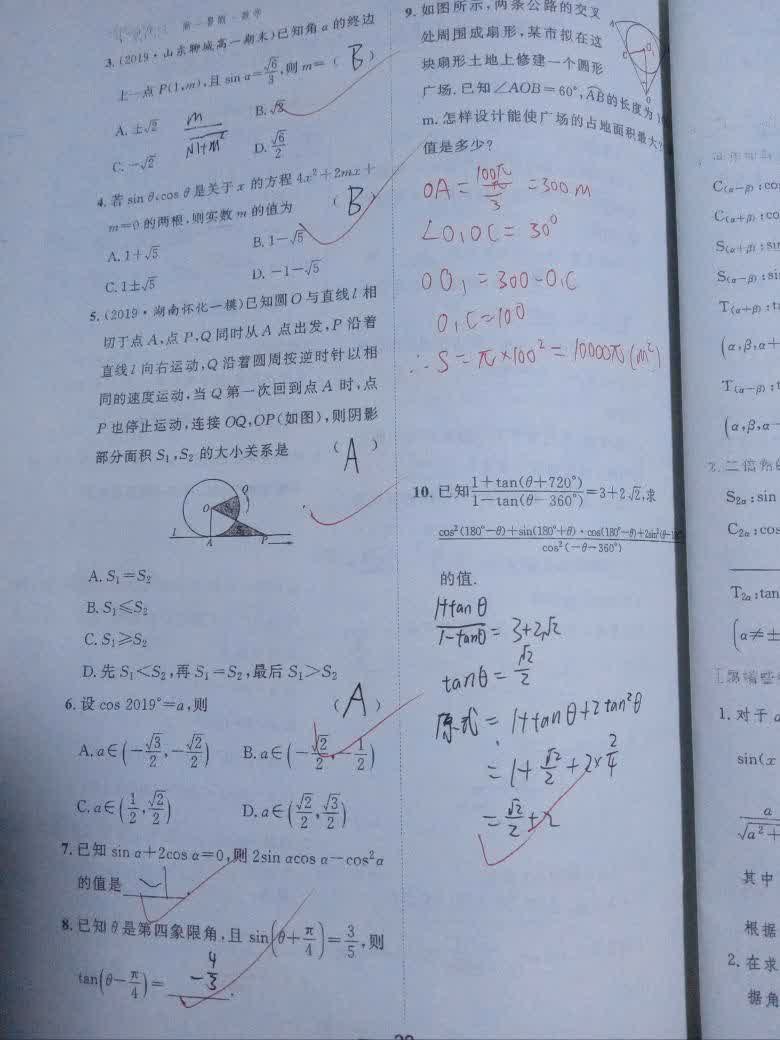 第一章 数学
3. (2019·山东聊城高一期末)已知角α的终边
上一点P(1,m),且sin α=√6/3,则m=( B )
A. ±√2 B. √2
C. -√2 D. √6/2
m/√1+m²
4. 若sin θ,cos θ是关于x的方程4x²+2mx+
m=0的两根,则实数m的值为 ( B )
A. 1+√5 B. 1-√5
C. 1±√5 D. -1-√5
5. (2019·湖南怀化一模)已知圆O与直线l相
切于点A,点P,Q同时从A点出发,P沿着
直线l向右运动,Q沿着圆周按逆时针以相
同的速度运动,当Q第一次回到点A时,点
P也停止运动,连接OQ,OP(如图),则阴影
部分面积S₁,S₂的大小关系是 ( A )
O Q
l A P
A. S₁=S₂
B. S₁≤S₂
C. S₁≥S₂
D. 先S₁<S₂,再S₁=S₂,最后S₁>S₂
6. 设cos 2019°=a,则 ( A )
A. a∈(-√3/2,-√2/2) B. a∈(-√2/2,-1/2)
C. a∈(1/2,√2/2) D. a∈(√2/2,√3/2)
7. 已知sin α+2cos α=0,则2sin αcos α-cos²α
的值是 -1 .
8. 已知θ是第四象限角,且sin(θ+π/4)=3/5,则
tan(θ-π/4)= -4/3 .
9. 如图所示,两条公路的交叉
处周围成扇形,某市拟在这
块扇形土地上修建一个圆形
广场.已知∠AOB=60°,AB的长度为
m.怎样设计能使广场的占地面积最大?
值是多少?
A O₁ C O
OA=100π/(π/3)=300m
∠O₁OC=30°
OO₁=300-O₁C
O₁C=100
∴S=π×100²=10000π(m²)
10. 已知(1+tan(θ+720°))/(1-tan(θ-360°))=3+2√2,求
cos²(180°-θ)+sin(180°+θ)·cos(180°-θ)+2sin²(θ-18
cos²(-θ-360°)
的值.
(1+tanθ)/(1-tanθ)=3+2√2
tanθ=√2/2
原式=1+tanθ+2tan²θ
=1+√2/2+2×2/4
=√2/2+2
C(α-β):co
C(α+β):co
S(α+β):sin
S(α-β):si
T(α+β):t
(α,β,α+
T(α-β):t
(α,β,α-
2. 二倍角
S₂α:sin
C₂α:cos
T₂α:tan
(α≠±
1. 对于a
sin(x
a
√a²+
其中
根据
2. 在求
据角